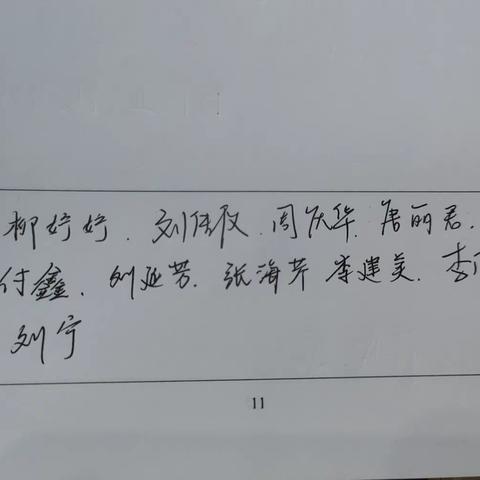 柳婷婷、刘佳佩、周庆华、唐丽君、
付鑫、刘延芳、张海芹 李建美、李
刘宁
11